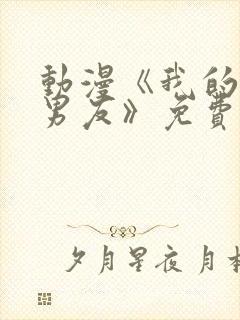 動漫《我的
男友》免費
夕月星夜月杉